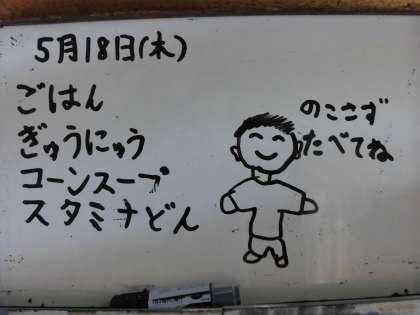 5月18日(木)
ごはん
ぎゅうにゅう
コーンスープ
スタミナどん
のこさず
たべてね